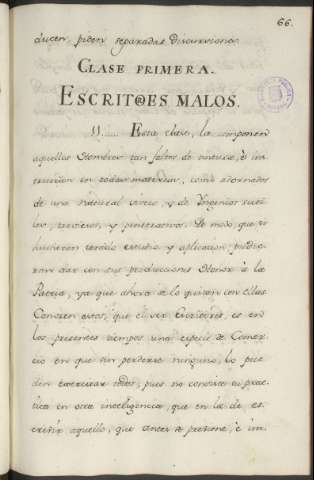 66.
ducen, piden separadas discursiones.
CLASE PRIMERA.
ESCRITORES MALOS.
11..... Esta clase, la componen
aquellos Hombres tan faltos de noticia, è in
truccion en todas materias, como adornados
de una natural viveza, y de Yngenios suti
les, traviesos, y penetrativos. De modo, que si
hubieran tenido estudio y aplicacion, pudie
ran dar con sus producciones Honor à la
Patria, ya que ahora se lo quitan con ellas
Conocen estos, que el ser Escritores, es en
los presentes tiempos una especie de Comer
cio en que sin perderse ninguno, lo pue
den exercitar todos, pues no consiste su prac
tica en otra inteligencia que en la de es
crivir aquello, que antes se previene, è im